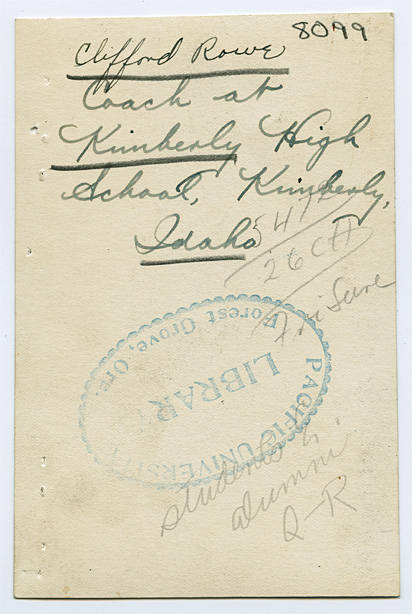 8099
Clifford Rowe
Coach at
Kimberly High
School, Kimberly,
Idaho
Fri Sure
PACIFIC UNIVERSITY
LIBRARY
Forest Grove, Ore.
students &
alumni
Q-R